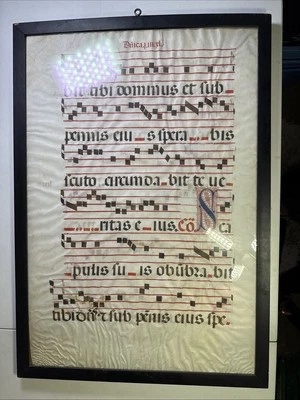 bit tibi dominus et sub
pennis eiu s spera bis
scuto circunda bit te ve
ritas e ius. Cō S ca
pulis su is obūbra bit
tibi dn̄s ⁊ sub pēnis eius spe